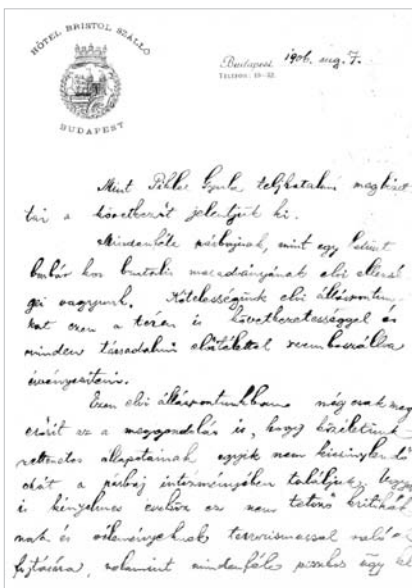 HÔTEL BRISTOL SZÁLLÓ
BUDAPEST
Budapest, 1906. aug. 7.
TELEFON: 19–32.
Mint Pikler Gyula teljhatalmu megbizot
tai a következőt jelentjük ki.
Mindenféle párbajnak, mint egy letünt
barbár kor brutalis maradványának elvi ellensé
gei vagyunk. Kötelességünk elvi álláspontun
kat ezen a téren is következetességgel és
minden társadalmi előitélettel szembeszállva
érvényesiteni.
Ezen elvi álláspontunkban még csak meg
erősit az a meggondolás is, hogy közéletünk
rettenetes állapotainak egyik nem kicsinylendő
okát a párbaj intézményében találjuk.
is kényelmes eszköz ez nem tetsző kritikák
nak és véleményeknek terrorismussal való el
fojtására, valamint mindenféle piszkos ügy